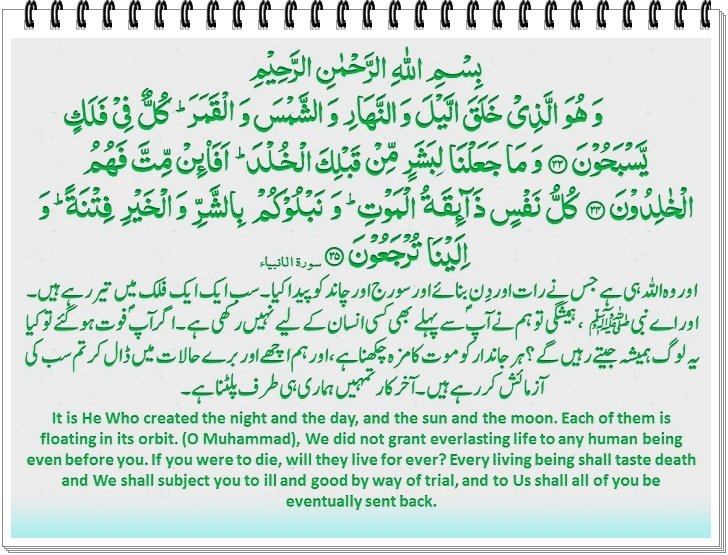 بِسْمِ اللهِ الرَّحْمٰنِ الرَّحِيْمِ
وَ هُوَ الَّذِيْ خَلَقَ الَّيْلَ وَ النَّهَارَ وَ الشَّمْسَ وَ الْقَمَرَ ؕ كُلٌّ فِيْ فَلَكٍ
يَّسْبَحُوْنَ ﴿۳۳﴾ وَ مَا جَعَلْنَا لِبَشَرٍ مِّنْ قَبْلِكَ الْخُلْدَ ؕ اَفَا۠ئِنْ مِّتَّ فَهُمُ
الْخٰلِدُوْنَ ﴿۳۴﴾ كُلُّ نَفْسٍ ذَآئِقَةُ الْمَوْتِ ؕ وَ نَبْلُوْكُمْ بِالشَّرِّ وَ الْخَيْرِ فِتْنَةً ؕ وَ
اِلَيْنَا تُرْجَعُوْنَ ﴿۳۵﴾ سورة الانبیاء
اور وہ اللہ ہی ہے جس نے رات اور دِن بنائے اور سورج اور چاند کو پیدا کیا۔ سب ایک ایک فلک میں تیر رہے ہیں۔
اور اے نبی ﷺ ، ہمیشگی تو ہم نے آپؐ سے پہلے بھی کسی انسان کے لیے نہیں رکھی ہے۔ اگر آپؐ فوت ہو گئے تو کیا
یہ لوگ ہمیشہ جیتے رہیں گے؟ ہر جاندار کو موت کا مزہ چکھنا ہے، اور ہم اچھے اور برے حالات میں ڈال کر تم سب کی
آزمائش کر رہے ہیں۔ آخرکار تمہیں ہماری ہی طرف پلٹنا ہے۔
It is He Who created the night and the day, and the sun and the moon. Each of them is
floating in its orbit. (O Muhammad), We did not grant everlasting life to any human being
even before you. If you were to die, will they live for ever? Every living being shall taste death
and We shall subject you to ill and good by way of trial, and to Us shall all of you be
eventually sent back.